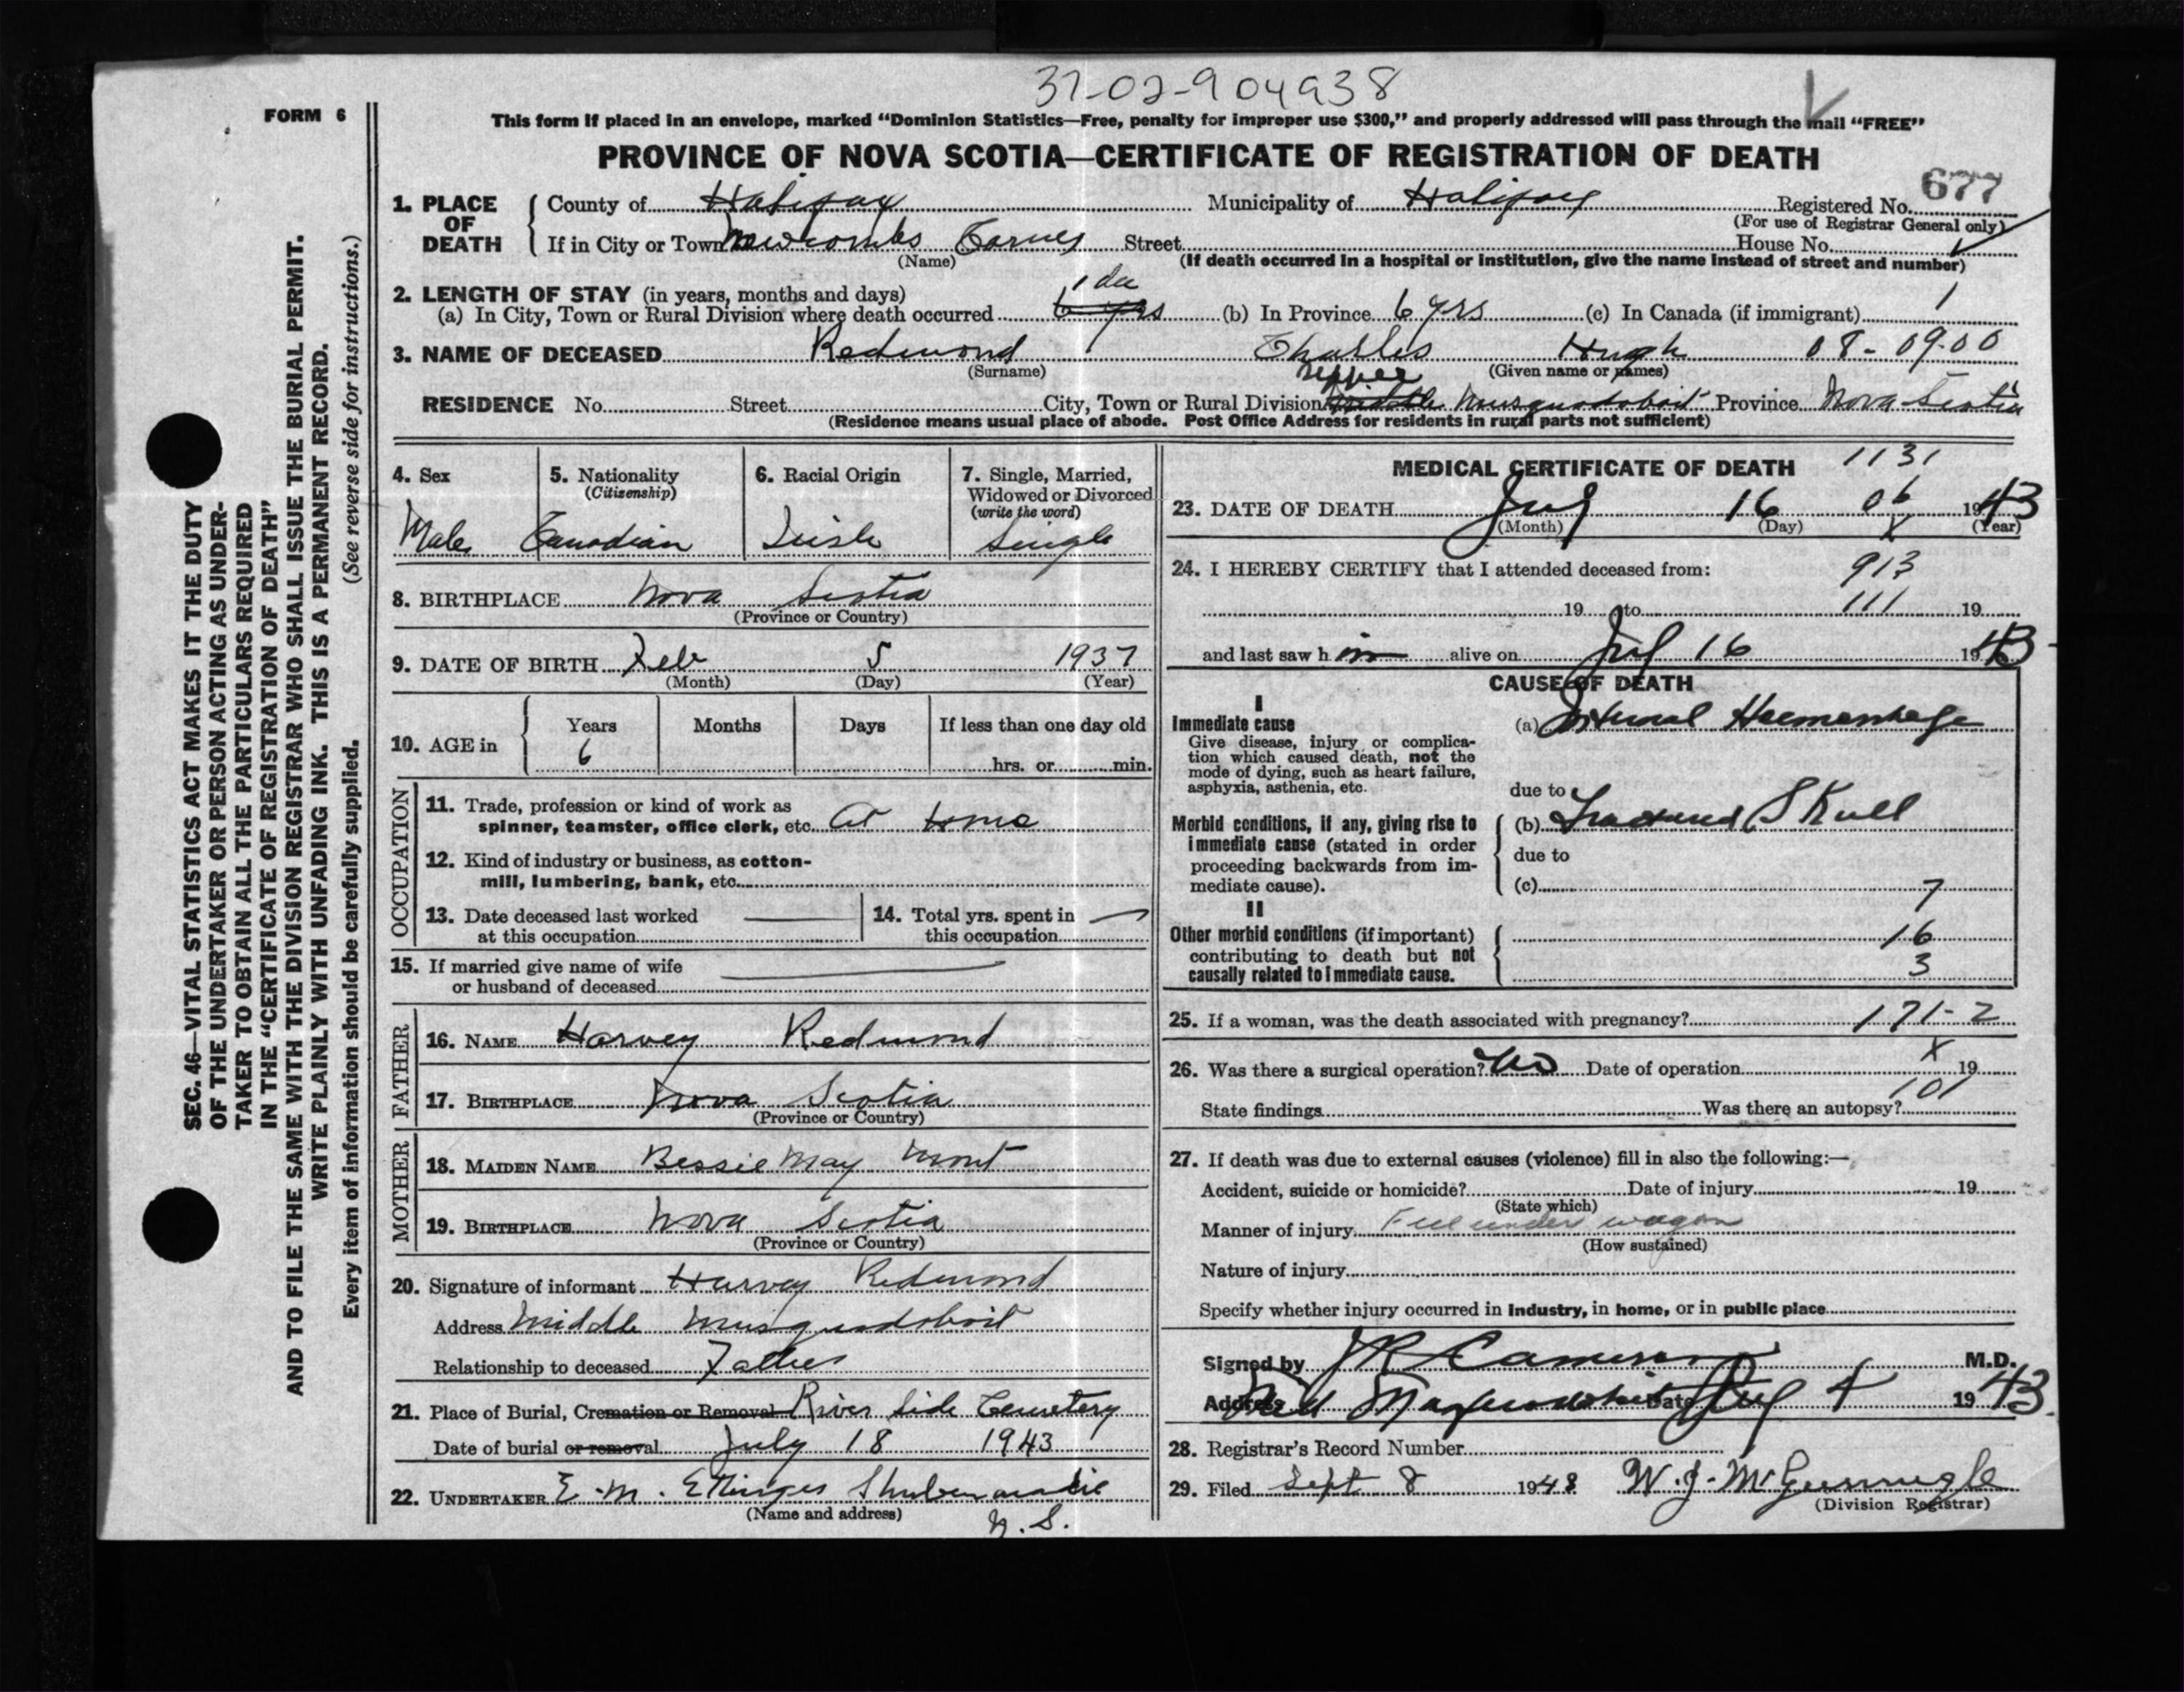 37-02-904938
FORM 6
This form if placed in an envelope, marked "Dominion Statistics—Free, penalty for improper use $300," and properly addressed will pass through the mail "FREE"
PROVINCE OF NOVA SCOTIA—CERTIFICATE OF REGISTRATION OF DEATH
677
1. PLACE OF DEATH County of Halifax Municipality of Halifax Registered No.
(For use of Registrar General only)
If in City or Town Newcombs Corner Street House No.
(Name) (If death occurred in a hospital or institution, give the name instead of street and number)
2. LENGTH OF STAY (in years, months and days) 1 da
(a) In City, Town or Rural Division where death occurred 6 yrs (b) In Province 6 yrs (c) In Canada (if immigrant) 1
3. NAME OF DECEASED Redmond Charles Hugh 08-09.00
(Surname) (Given name or names)
Upper
RESIDENCE No. Street City, Town or Rural Division Middle Musquodoboit Province Nova Scotia
(Residence means usual place of abode. Post Office Address for residents in rural parts not sufficient)
4. Sex 5. Nationality 6. Racial Origin 7. Single, Married,
(Citizenship) Widowed or Divorced
(write the word)
Male Canadian Irish Single
8. BIRTHPLACE Nova Scotia
(Province or Country)
9. DATE OF BIRTH Feb 5 1937
(Month) (Day) (Year)
10. AGE in Years Months Days If less than one day old
6
hrs. or min.
OCCUPATION
11. Trade, profession or kind of work as
spinner, teamster, office clerk, etc. At Home
12. Kind of industry or business, as cotton-
mill, lumbering, bank, etc.
13. Date deceased last worked 14. Total yrs. spent in
at this occupation this occupation
15. If married give name of wife
or husband of deceased
FATHER
16. NAME Harvey Redmond
17. BIRTHPLACE Nova Scotia
(Province or Country)
MOTHER
18. MAIDEN NAME Bessie May
19. BIRTHPLACE Nova Scotia
(Province or Country)
20. Signature of informant Harvey Redmond
Address Middle Musquodoboit
Relationship to deceased Father
21. Place of Burial, Cremation or Removal River Side Cemetery
Date of burial or removal July 18 1943
22. UNDERTAKER E. M. Shubenacadie
(Name and address) N. S.
MEDICAL CERTIFICATE OF DEATH 1131
23. DATE OF DEATH July 16 06 1943
(Month) (Day) X (Year)
24. I HEREBY CERTIFY that I attended deceased from: 913
19 to 111 19
and last saw him alive on July 16 1943
CAUSE OF DEATH
I
Immediate cause (a) Internal Haemorrhage
Give disease, injury or complica-
tion which caused death, not the
mode of dying, such as heart failure,
asphyxia, asthenia, etc.
due to
Morbid conditions, if any, giving rise to (b) Fractured Skull
immediate cause (stated in order
proceeding backwards from im- due to
mediate cause). (c) 7
II
Other morbid conditions (if important) 16
contributing to death but not
causally related to immediate cause. 3
25. If a woman, was the death associated with pregnancy? 171-2
26. Was there a surgical operation? No Date of operation X 19
State findings Was there an autopsy? 101
27. If death was due to external causes (violence) fill in also the following:—
Accident, suicide or homicide? Date of injury 19
(State which)
Manner of injury Fell under wagon
(How sustained)
Nature of injury
Specify whether injury occurred in industry, in home, or in public place
Signed by J R Cameron M.D.
Address Mid Musquodoboit Date 4 1943.
28. Registrar's Record Number
29. Filed Sept 8 1943
(Division Registrar)
SEC. 46—VITAL STATISTICS ACT MAKES IT THE DUTY
OF THE UNDERTAKER OR PERSON ACTING AS UNDER-
TAKER TO OBTAIN ALL THE PARTICULARS REQUIRED
IN THE "CERTIFICATE OF REGISTRATION OF DEATH"
AND TO FILE THE SAME WITH THE DIVISION REGISTRAR WHO SHALL ISSUE THE BURIAL PERMIT.
WRITE PLAINLY WITH UNFADING INK. THIS IS A PERMANENT RECORD.
Every item of information should be carefully supplied. (See reverse side for instructions.)